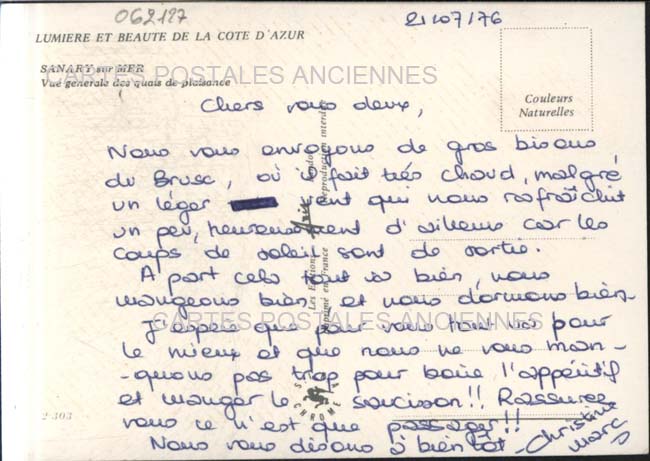 062127
21/07/76
LUMIERE ET BEAUTE DE LA COTE D'AZUR
SANARY sur MER
Vue generale des quais de plaisance
CARTES POSTALES ANCIENNES
Couleurs
Naturelles
Chers vous deux,
Nous vous envoyons de gros bisous
du Brusc, où il fait très chaud, malgré
un léger vent qui nous rafraîchit
un peu, heureusement d'ailleurs car les
coups de soleil sont de sortie.
A part cela tout va bien, nous
mangeons bien et nous dormons bien.
CARTES POSTALES ANCIENNES
J'espère que pour vous tout va pour
le mieux et que nous ne vous man-
-quons pas trop pour boire l'appéritif
et manger le saucisson!! Rassurez
vous ce n'est que passager!!
Nous vous disons à bientôt
Christine
Marc
2-303
Les Editions
Imprimé en France
Reproduction interdite
CHROME